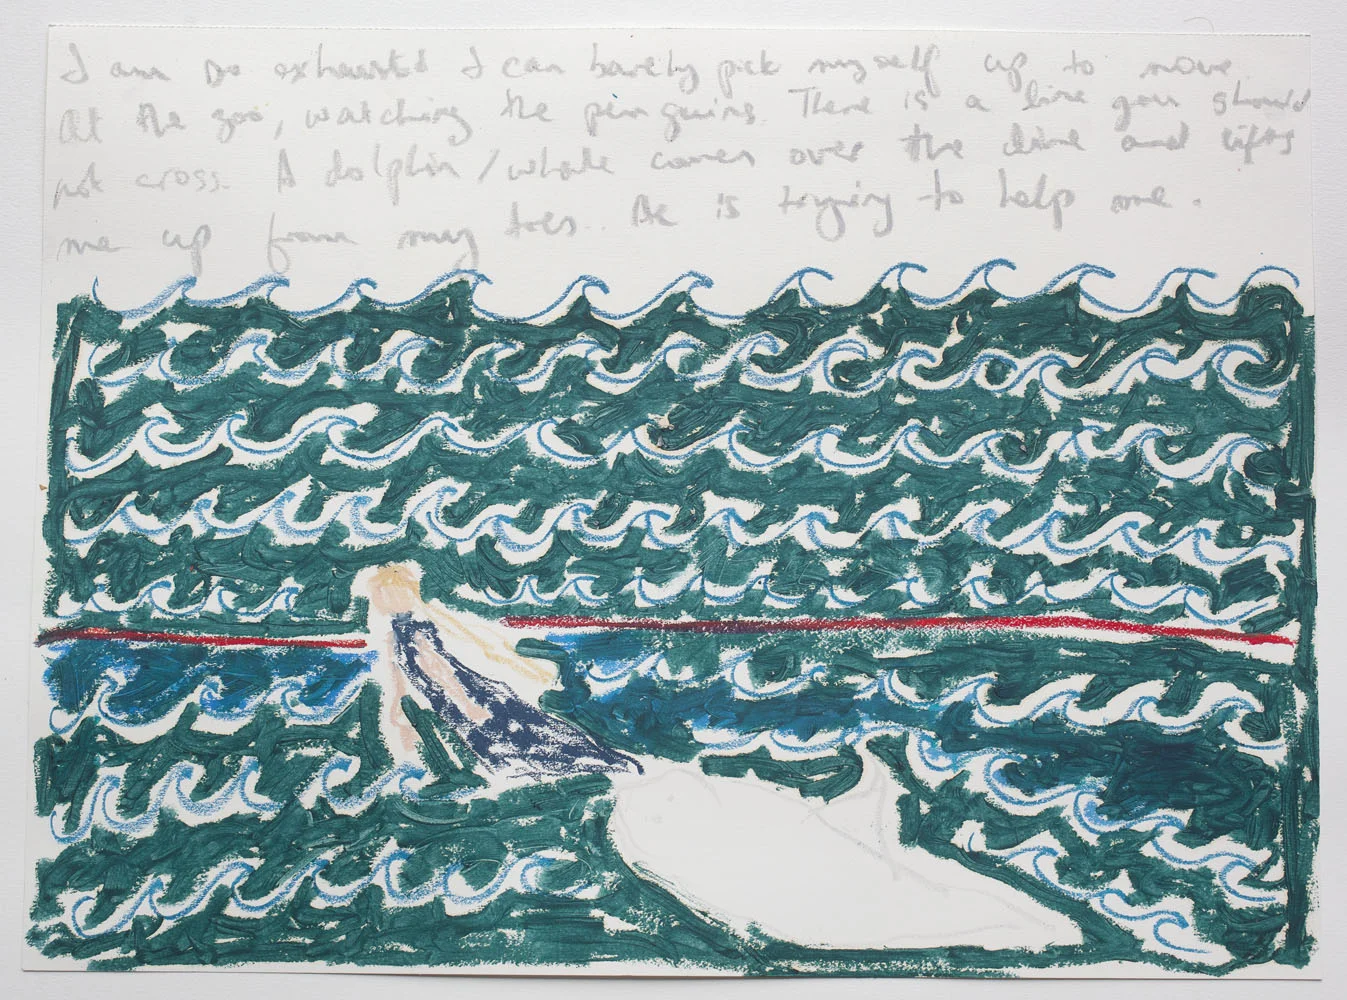 I am so exhausted I can barely pick myself up to move.
At the zoo, watching the penguins. There is a line you should
not cross. A dolphin/whale comes over the line and lifts
me up from my toes.. He is trying to help me.